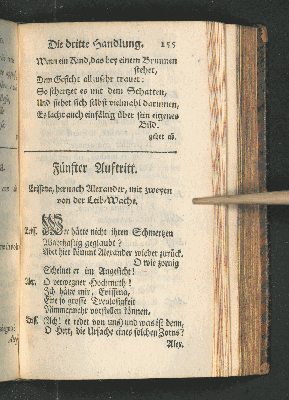 Die dritte Handlung. 155
Wenn ein Kind, das bey einem Brunnen
stehet,
Dem Gesicht allzusehr trauet:
So schertzet es mit dem Schatten,
Und siehet sich selbst vielmahl darinnen,
Es lacht auch einfältig über sein eigenes
Bild.
gehet ab.
Fünfter Auftritt.
Erissena, hernach Alexander, mit zweyen
von der Leib-Wache.
Eriss. Wer hätte nicht ihren Schmertzen
Warhafftig geglaubt?
Aber hier kömmt Alexander wieder zurück.
O wie zornig
Scheinet er im Angesicht!
Alex. O verwegner Hochmuth!
Ich hätte mir, Erissena,
Eine so grosse Treulosigkeit
Nimmermehr vorstellen können.
Eriss. Ach! er redet von uns) und was ist denn,
O Herr, die Ursache eines solchen Zorns?
Alex.